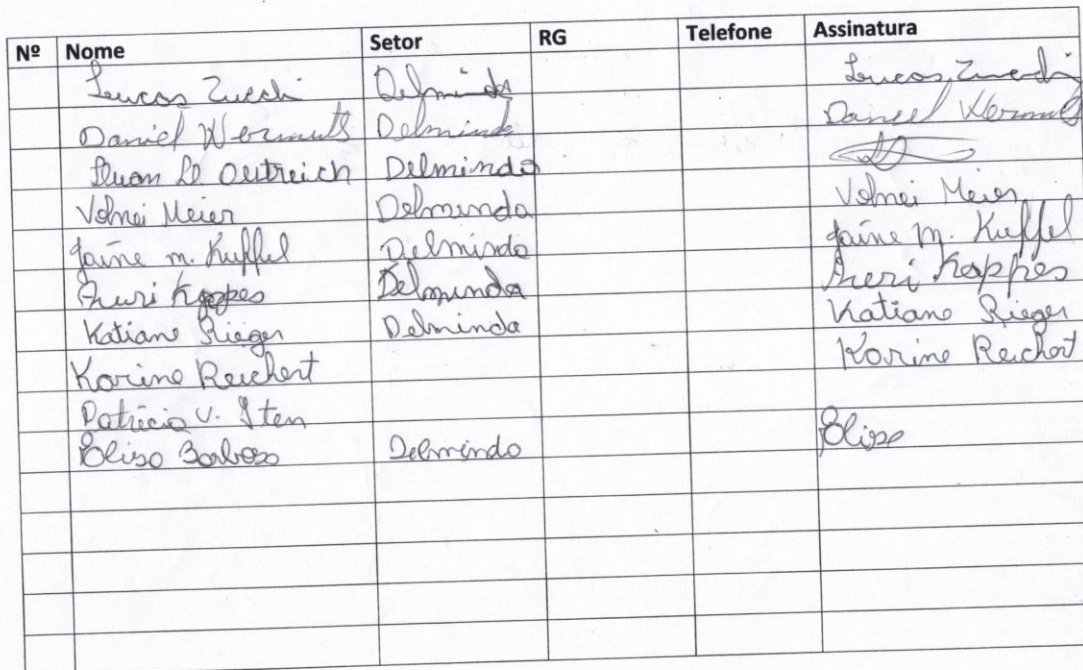 Nº Nome Setor RG Telefone Assinatura
Lucas Zucchi Delminda Lucas Zucchi
Daniel Wermuth Delminda Daniel Wermuth
Luan Delminda
Volnei Meier Delminda Volnei Meier
Jaíne m. Kuffel Delminda Jaíne M. Kuffel
Kappes Delminda Kappes
Katiane Rieger Delminda Katiane Rieger
Karine Reichert Karine Reichert
Patrícia V. Sten
Elisa Barbosa Delminda Elisa